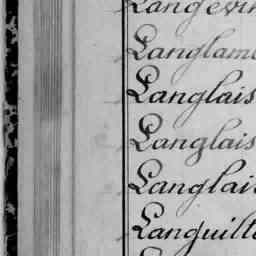 Langevin
Langlame
Langlais
Langlais
Langlais
Languille